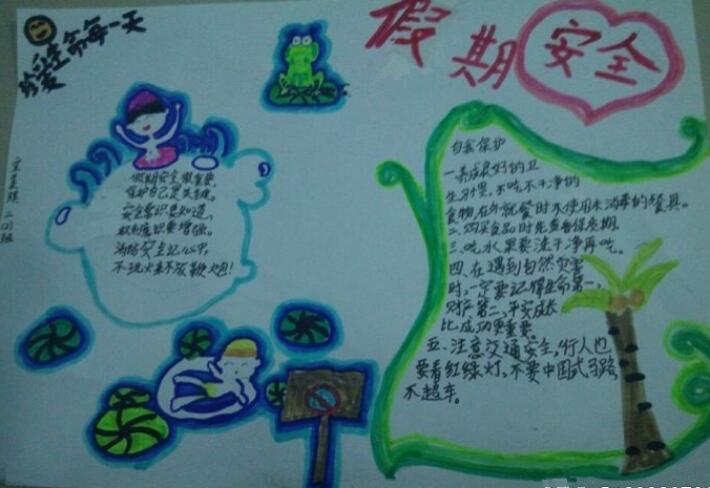 珍爱生命每一天
假期安全
假期安全很重要,
保护自己是关键。
安全常识要知道,
意识要增强。
安全记心中,
不玩火来不放鞭炮!
二(1)班
自我保护
一、养成良好的卫
生习惯,不吃不干净的
食物,在外就餐时不使用未消毒的餐具。
二、购买食品时先查看保质期。
三、吃水果要洗干净再吃。
四、在遇到自然灾害
时,一定要记牢生命第一,
财产第二,平安成长
比成功更重要。
五、注意交通安全,行人也
要看红绿灯,不要中国式马路,
不超车。